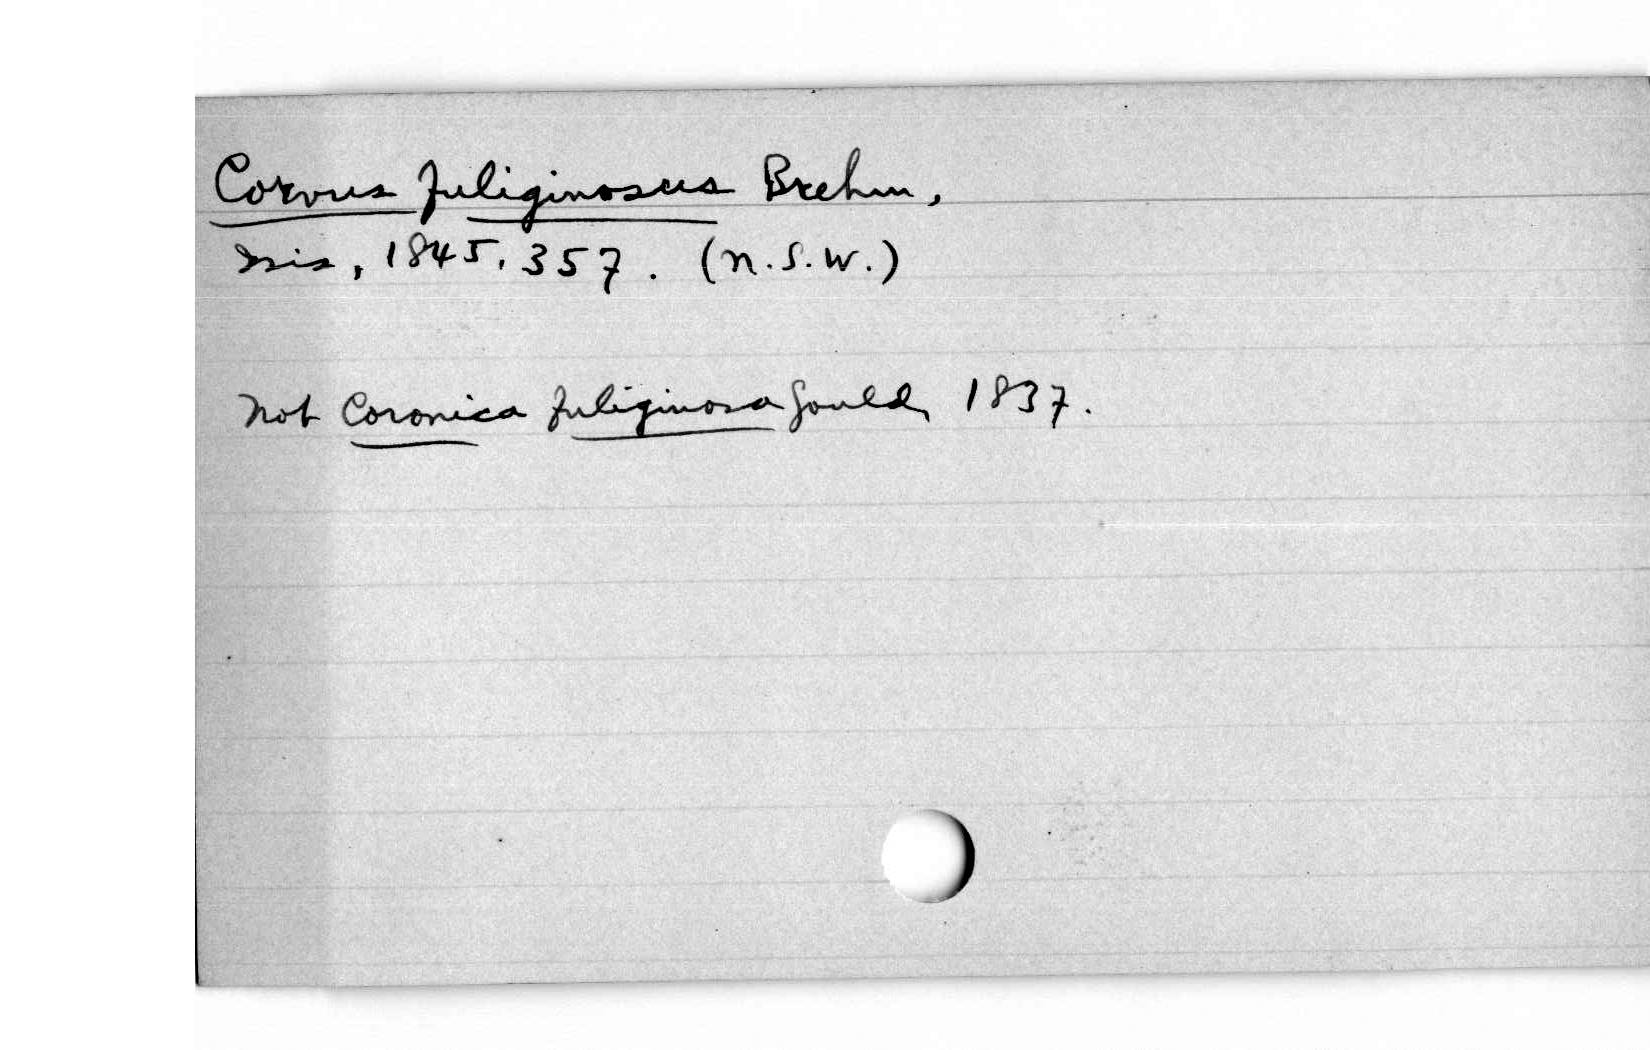 Corvus fuliginosus Brehm,
Isis, 1845, 357. (N.S.W.)
Not Coronica fuliginosa Gould, 1837.